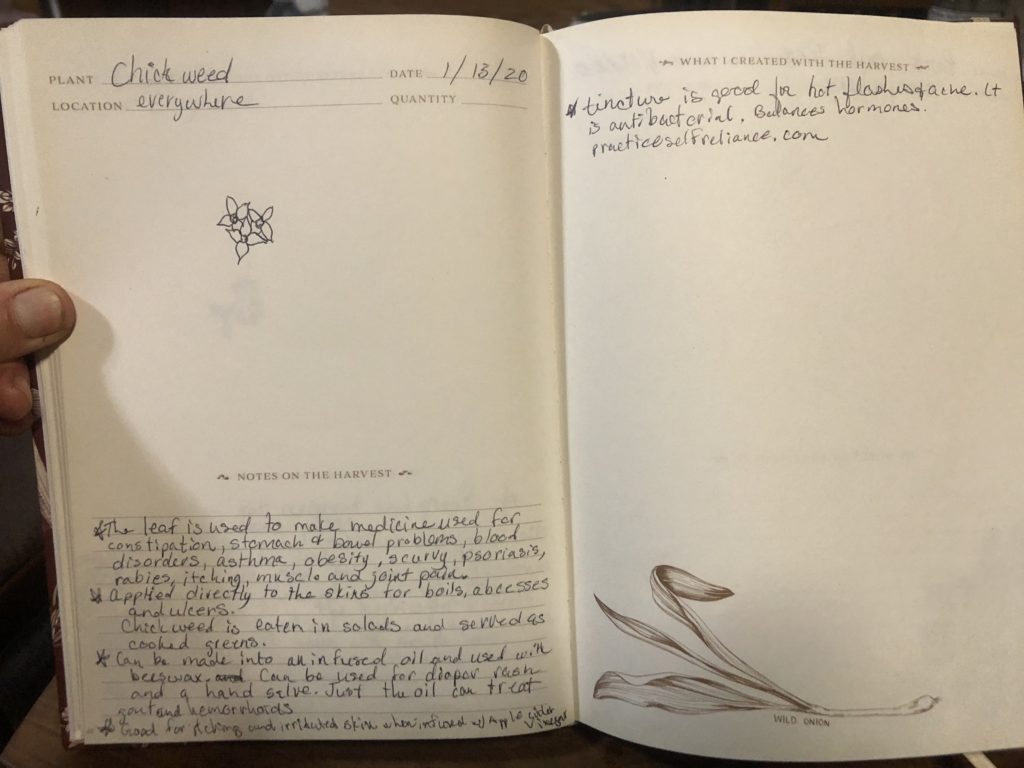 PLANT Chickweed DATE 1/13/20
LOCATION everywhere QUANTITY
NOTES ON THE HARVEST
*The leaf is used to make medicine used for
constipation, stomach & bowel problems, blood
disorders, asthma, obesity, scurvy, psoriasis,
rabies, itching, muscle and joint pain.
* Applied directly to the skins for boils, abcesses
and ulcers.
Chickweed is eaten in salads and served as
cooked greens.
* Can be made into an infused oil and used with
beeswax. Can be used for diaper rash
and a hand salve. Just the oil can treat
gout and hemorrhoids
* Good for itching and irritated skin when infused w/ Apple cider Vinegar
WHAT I CREATED WITH THE HARVEST
* tincture is good for hot flashes & acne. It
is antibacterial. Balances hormones.
practiceselfreliance.com
WILD ONION